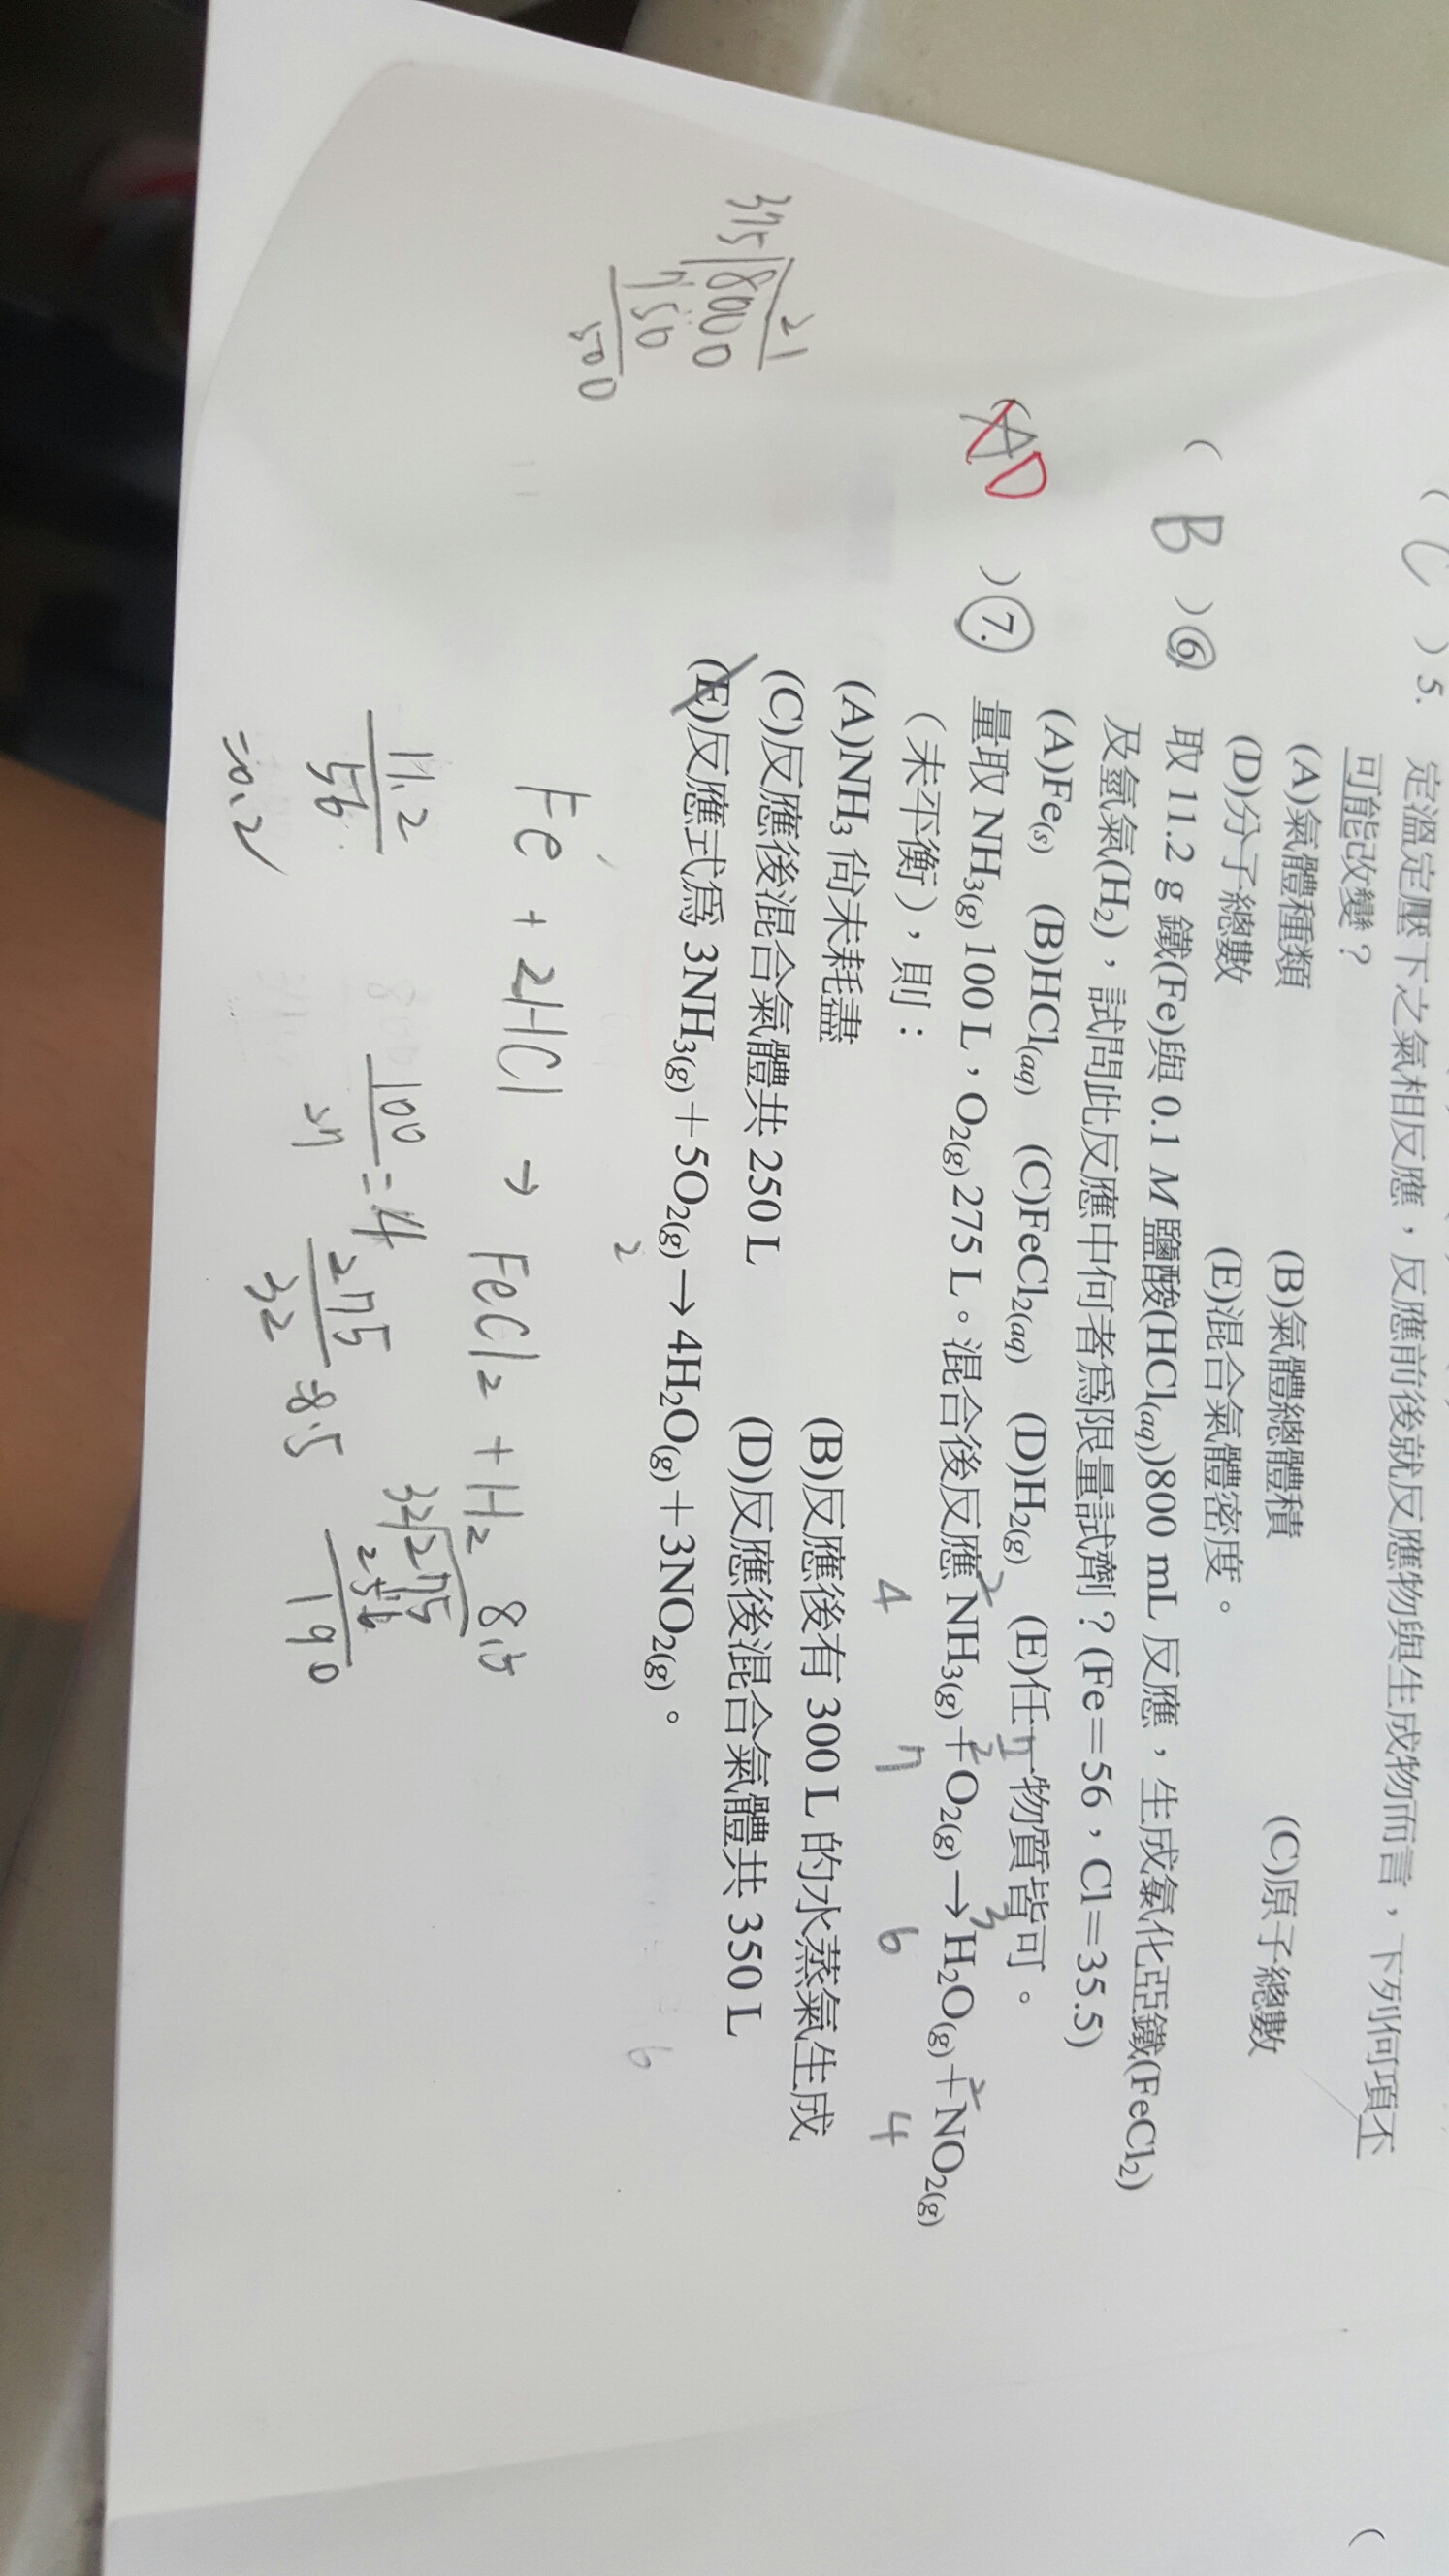 ( C ) 5. 定溫定壓下之氣相反應，反應前後就反應物與生成物而言，下列何項不
可能改變？
(A)氣體種類 (B)氣體總體積 (C)原子總數
(D)分子總數 (E)混合氣體密度。
( B ) 6. 取 11.2 g 鐵(Fe)與 0.1 M 鹽酸(HCl(aq))800 mL 反應，生成氯化亞鐵(FeCl₂)
及氫氣(H₂)，試問此反應中何者為限量試劑？(Fe＝56，Cl＝35.5)
(A)Fe(s) (B)HCl(aq) (C)FeCl₂(aq) (D)H₂(g) (E)任一物質皆可。
(A D ) 7. 量取 NH₃(g) 100 L，O₂(g) 275 L。混合後反應 NH₃(g)＋O₂(g)→H₂O(g)＋NO₂(g)
2 7/2 3 2
（未平衡），則：
4 7 6 4
(A)NH₃ 尚未耗盡 (B)反應後有 300 L 的水蒸氣生成
(C)反應後混合氣體共 250 L (D)反應後混合氣體共 350 L
(E)反應式為 3NH₃(g)＋5O₂(g)→4H₂O(g)＋3NO₂(g)。
2
6
Fe + 2HCl → FeCl₂ + H₂
11.2
56
=0.2
100
=4
275
32
=8.5
8.5
32 275
256
190
21
375 8000
750
500